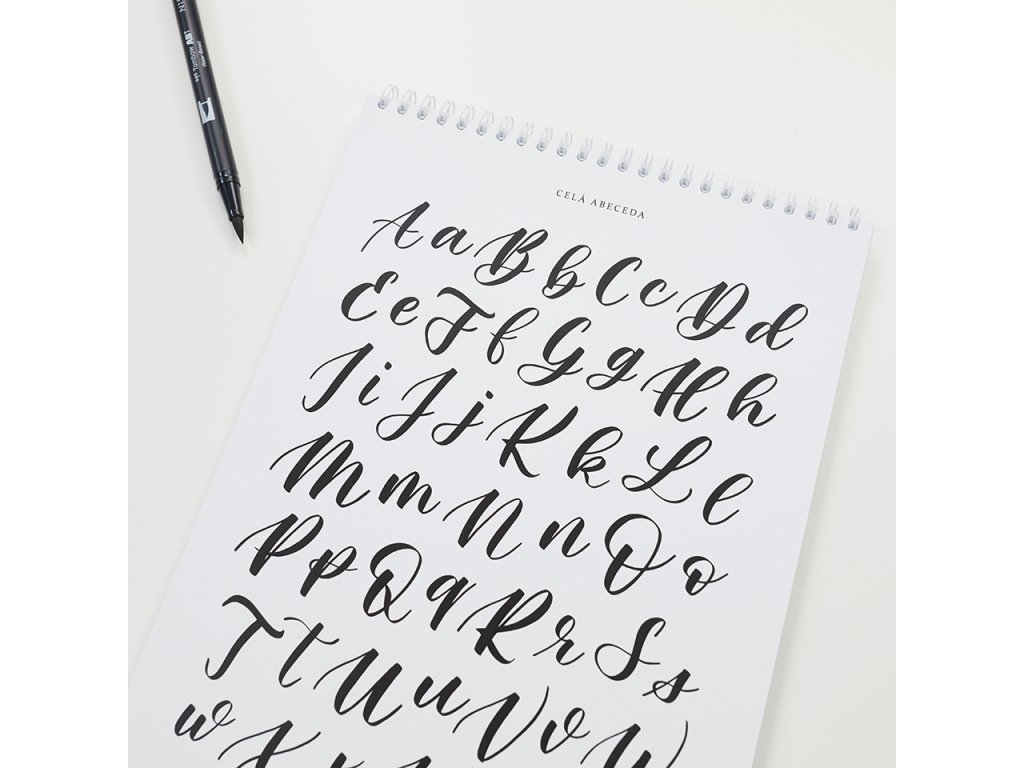 Tombow ABT
CELÁ ABECEDA
Aa Bb Cc Dd
Ee Ff Gg Hh
Ii Jj Kk Ll
Mm Nn Oo
Pp Qq Rr Ss
Tt Uu Vv W
w X